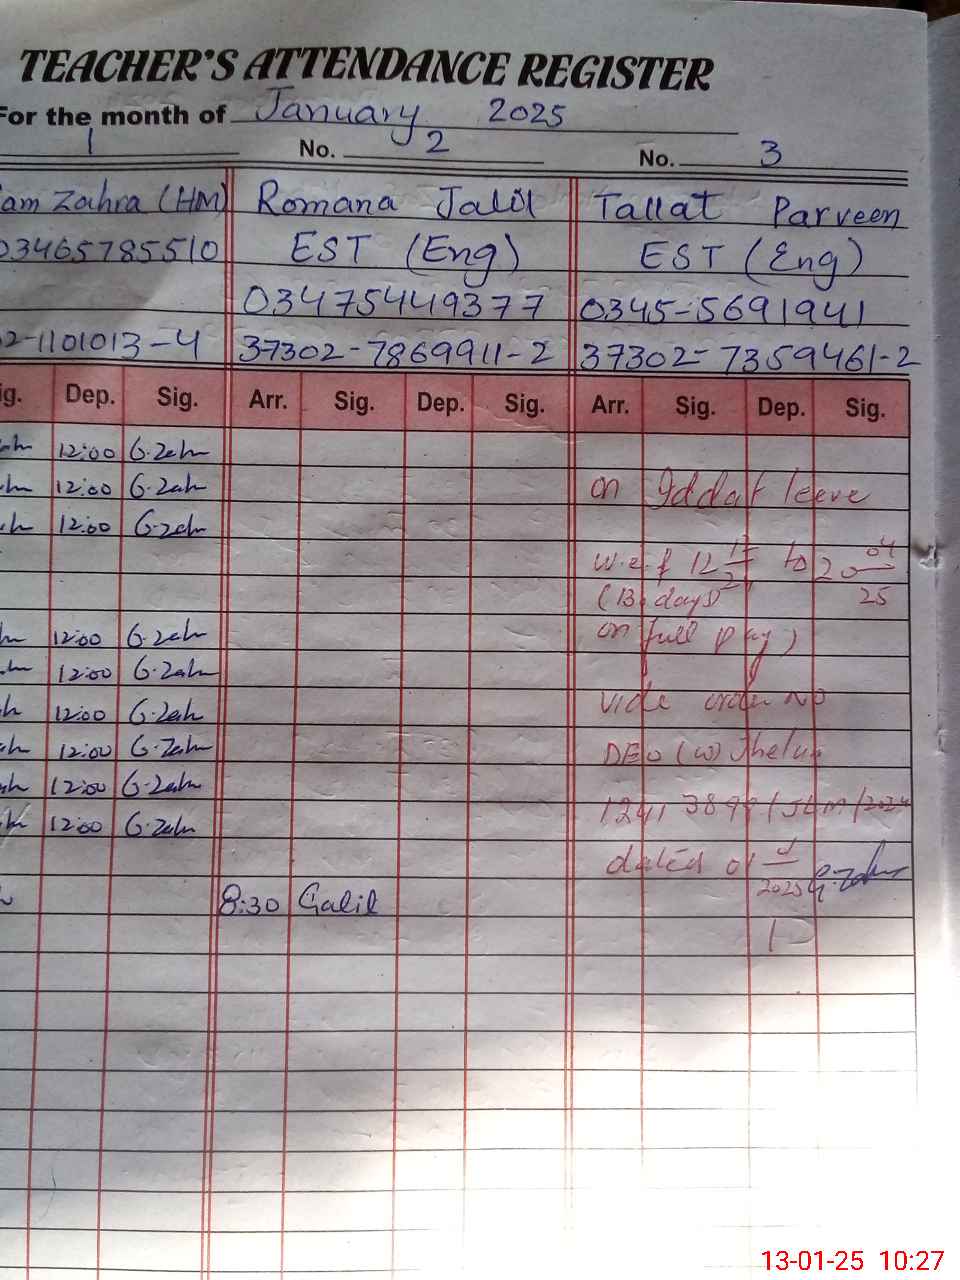 TEACHER'S ATTENDANCE REGISTER
For the month of January 2025
1 No. 2 No. 3
am Zahra (HM) Romana Jalil Tallat Parveen
03465785510 EST (Eng) EST (Eng)
03475449377 0345-5691941
02-1101013-4 37302-7869911-2 37302-7359461-2
ig. Dep. Sig. Arr. Sig. Dep. Sig. Arr. Sig. Dep. Sig.
12:00 G.Zah
12:00 G.Zah on Iddat leeve
12:00 G.Zah
w.e.f 12 to 20 04
(13 days) 25
12:00 G.Zah on full pay)
12:00 G.Zah
12:00 G.Zah vide order No
12:00 G.Zah DEO (W) Jhelum
12:00 G.Zah
12:00 G.Zah /JLM/2024
dated
2025 G.Zah
8:30 Galil
13-01-25 10:27